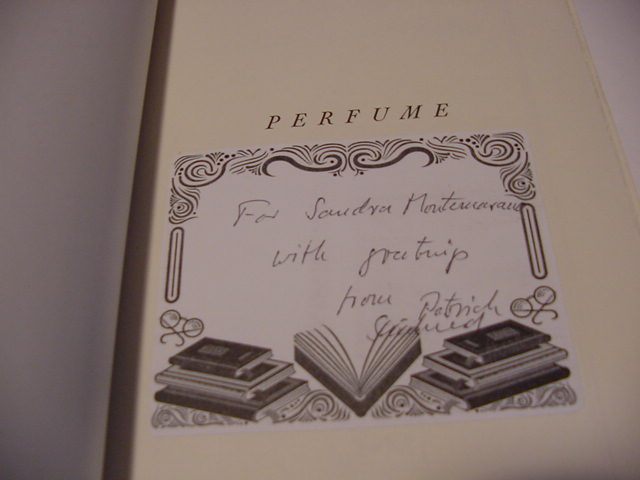 PERFUME
For Sandra Montemarano
with greetings
from Patrick
Süskind